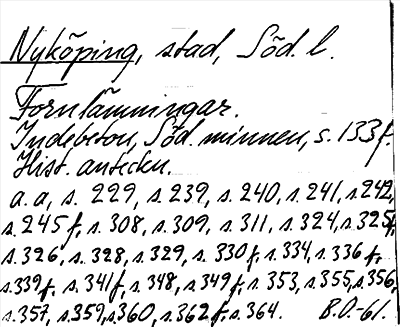 Nyköping, stad, Söd. l.
Fornlämningar.
Indebetou, Söd. minnen, s. 133 f.
Hist. anteckn.
a. a, s. 229, s. 239, s. 240, s. 241, s. 242,
s. 245 f, s. 308, s. 309, s. 311, s. 324, s. 325 f,
s. 326, s. 328, s. 329, s. 330 f, s. 334, s. 336 f,
s. 339 f, s. 341 f, s. 348, s. 349 f, s. 353, s. 355, s. 356,
s. 357, s. 359, s. 360, s. 362 f, s. 364. B.O.-61.